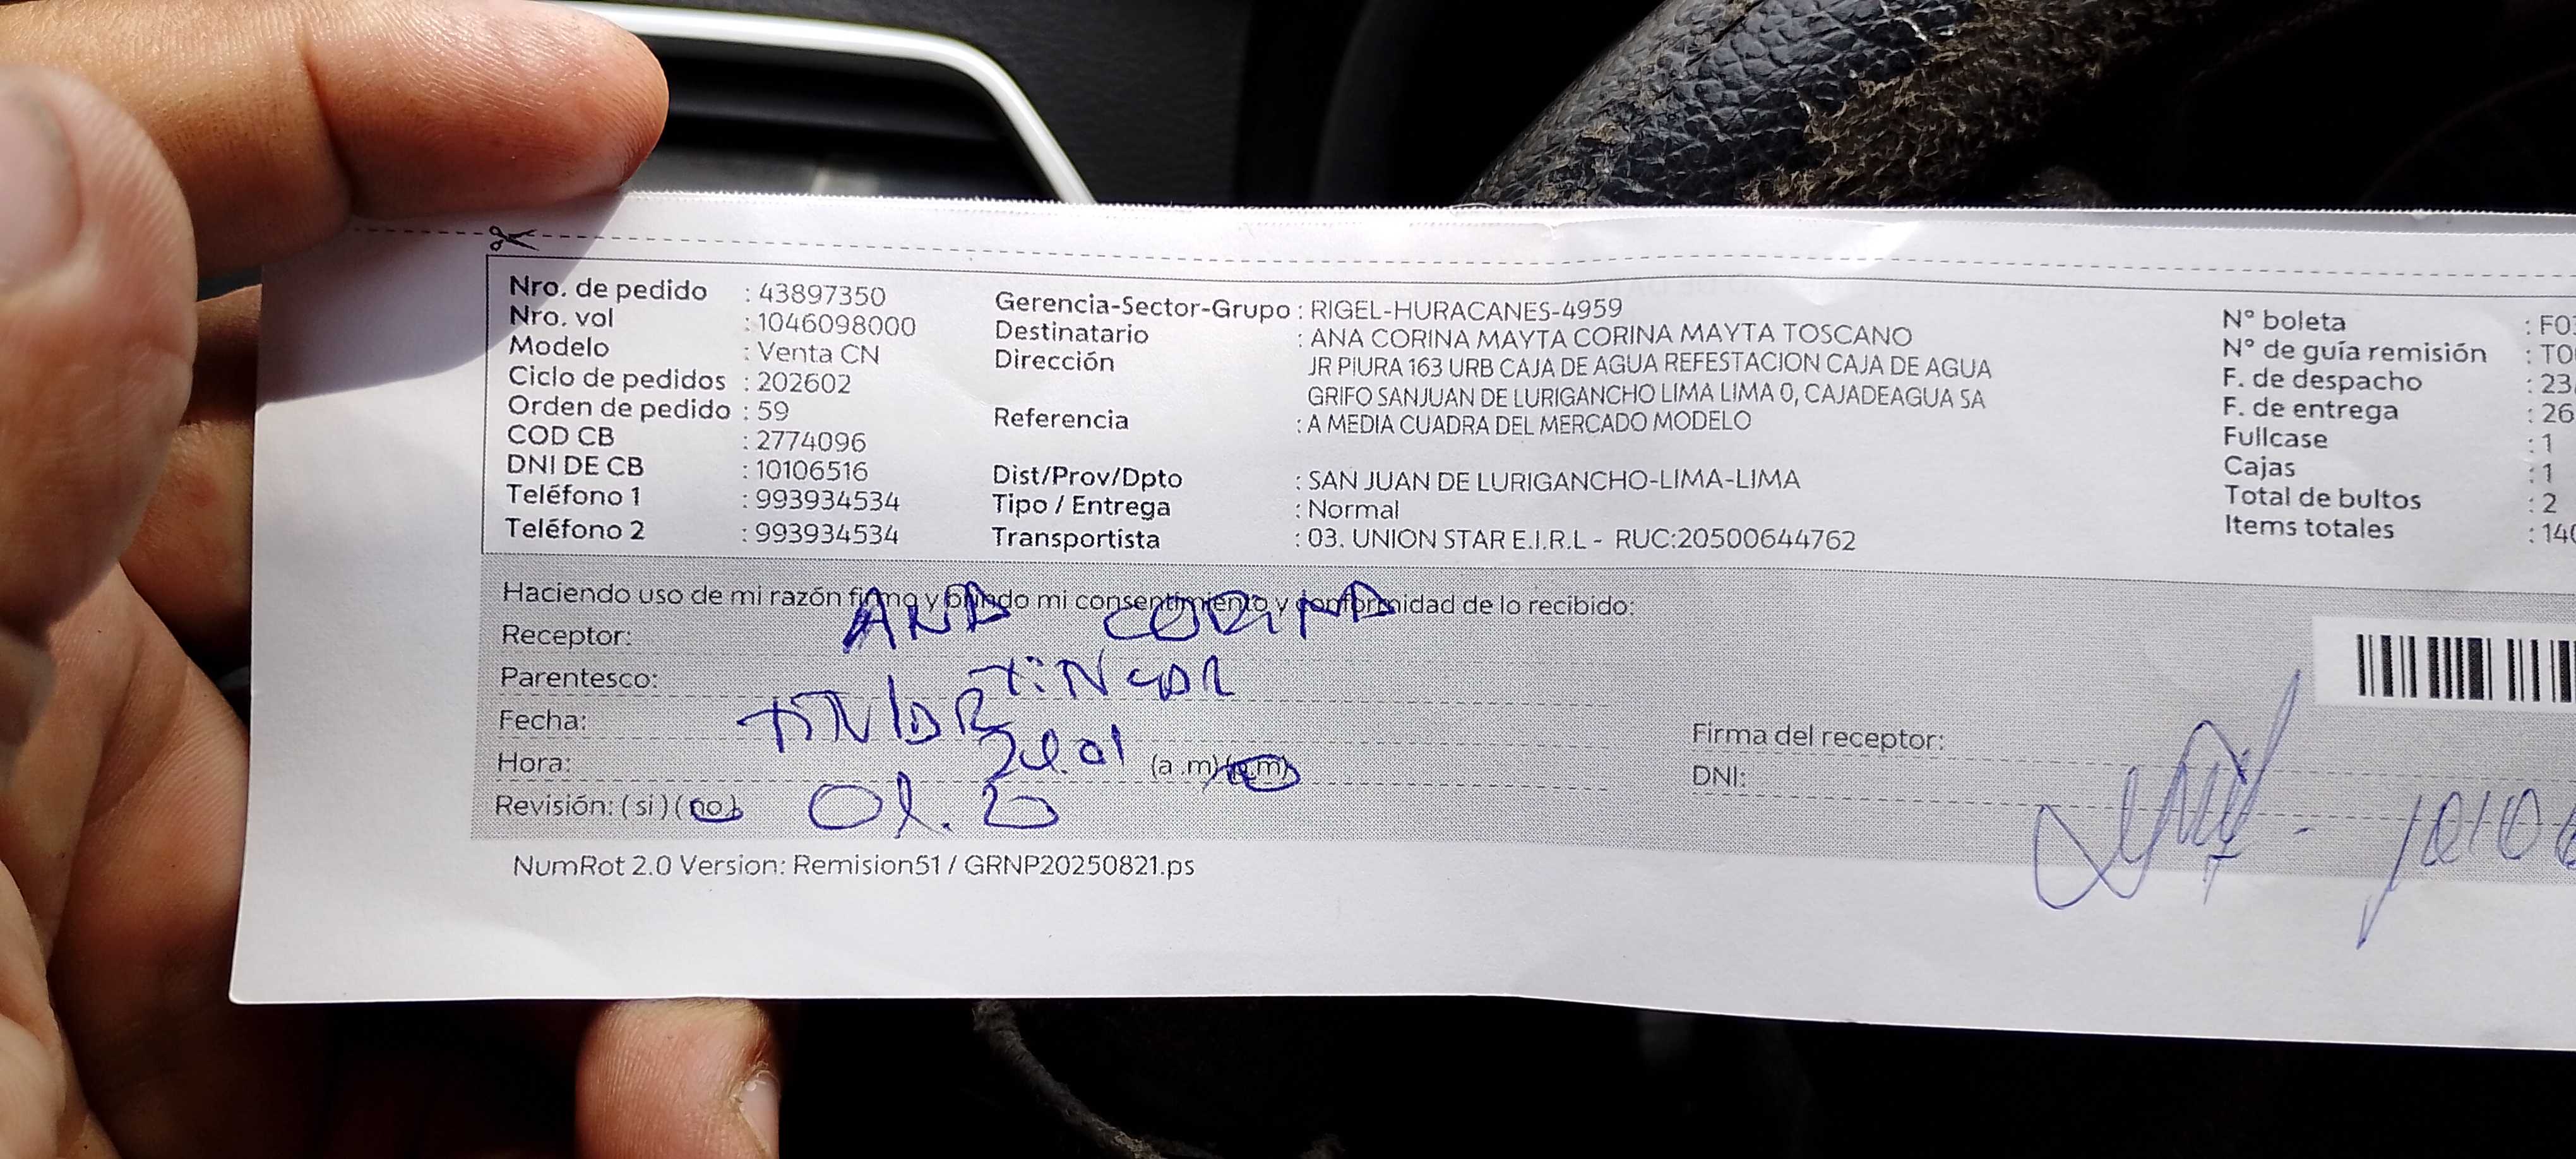 Nro. de pedido : 43897350
Nro. vol : 1046098000
Modelo : Venta CN
Ciclo de pedidos : 202602
Orden de pedido : 59
COD CB : 2774096
DNI DE CB : 10106516
Teléfono 1 : 993934534
Teléfono 2 : 993934534
Gerencia-Sector-Grupo : RIGEL-HURACANES-4959
Destinatario : ANA CORINA MAYTA CORINA MAYTA TOSCANO
Dirección JR PIURA 163 URB CAJA DE AGUA REFESTACION CAJA DE AGUA
GRIFO SANJUAN DE LURIGANCHO LIMA LIMA 0, CAJADEAGUA SA
Referencia : A MEDIA CUADRA DEL MERCADO MODELO
Dist/Prov/Dpto : SAN JUAN DE LURIGANCHO-LIMA-LIMA
Tipo / Entrega : Normal
Transportista : 03. UNION STAR E.I.R.L - RUC:20500644762
N° boleta : F03
N° de guía remisión : T0
F. de despacho : 23
F. de entrega : 26
Fullcase : 1
Cajas : 1
Total de bultos : 2
Items totales : 140
Haciendo uso de mi razón firmo y brindo mi consentimiento y conformidad de lo recibido:
Receptor: ANA CORINA
Parentesco:
Fecha:
Hora: (a.m) (p.m)
Revisión: (si) (no)
Firma del receptor:
DNI: 1010
NumRot 2.0 Version: Remision51 / GRNP20250821.ps